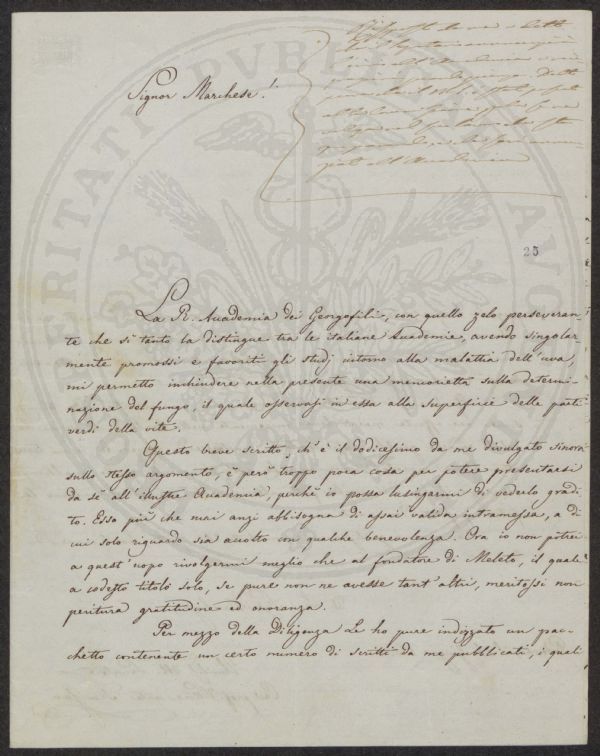 Signor Marchese!
25
La R. Accademia dei Georgofili, con quello zelo perseveran-
te che sì tanto la distingue tra le italiane Accademie, avendo singolar-
mente promossi e favoriti gli studj intorno alla malattia dell'uva,
mi permetto inchiudere nella presente una memorietta sulla determi-
nazione del fungo, il quale osservasi in essa alla superficie delle parti
verdi della vite.
Questo breve scritto, ch'è il dodicesimo da me divulgato sinora
sullo stesso argomento, è però troppo poca cosa per potere presentarsi
da sè all'illustre Accademia, perchè io possa lusingarmi di vederlo gradi-
to. Esso più che mai anzi abbisogna di assai valida intramessa, a di
cui solo riguardo sia accolto con qualche benevolenza. Ora io non potrei
a quest'uopo rivolgermi meglio che al fondatore di Meleto, il quale
a codesto titolo solo, se pure non ne avesse tant'altri, meritossi non
peritura gratitudine ed onoranza.
Per mezzo della Diligenza Le ho pure indirizzato un pac-
chetto contenente un certo numero di scritti da me pubblicati, i quali